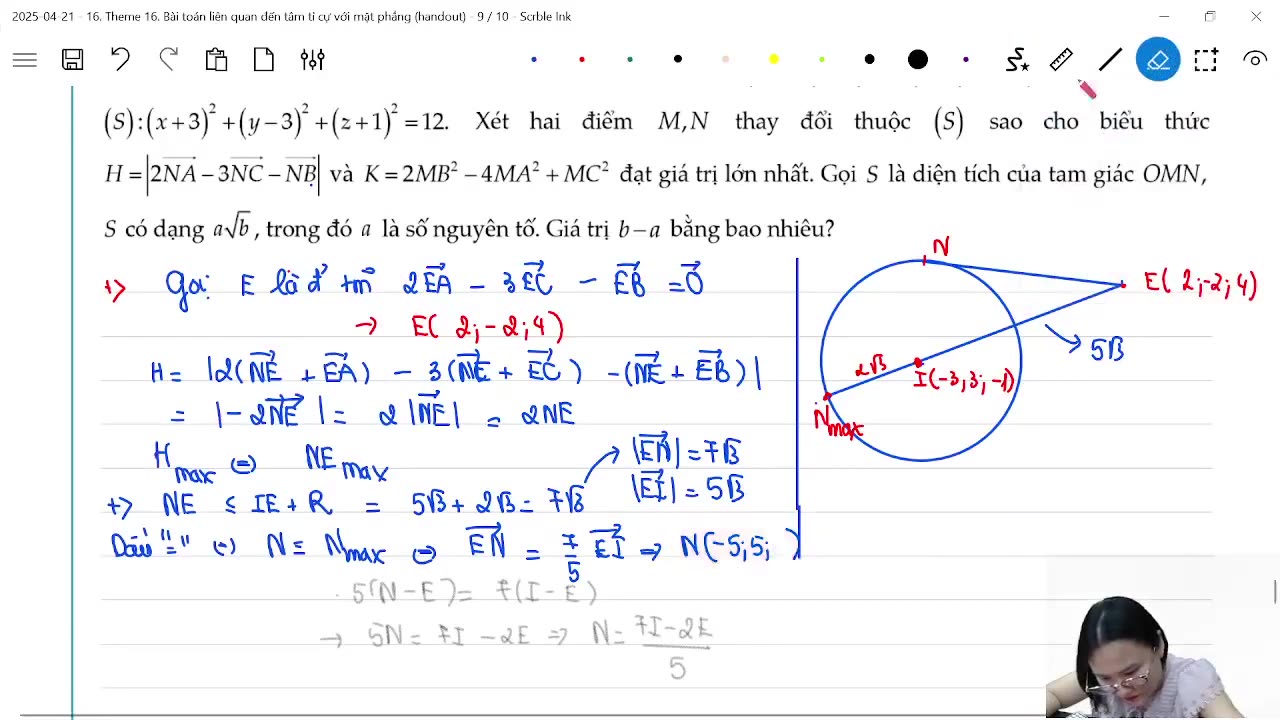 2025-04-21 - 16. Theme 16. Bài toán liên quan đến tâm tỉ cự với mặt phẳng (handout) - 9 / 10 - Scrble Ink
(S):(x+3)²+(y−3)²+(z+1)²=12. Xét hai điểm M,N thay đổi thuộc (S) sao cho biểu thức
H=|2NA−3NC−NB| và K=2MB²−4MA²+MC² đạt giá trị lớn nhất. Gọi S là diện tích của tam giác OMN,
S có dạng a√b, trong đó a là số nguyên tố. Giá trị b−a bằng bao nhiêu?
+> Gọi E là đ' tm 2EA − 3EC − EB = 0
→ E(2;-2;4)
H = |2(NE + EA) − 3(NE + EC) −(NE + EB)|
= |−2NE| = 2|NE| = 2NE
Hmax ⇔ NEmax
+> NE ≤ IE + R = 5√3 + 2√3 = 7√3
|EN| = 7√3
|EI| = 5√3
Dấu "=" ⇔ N ≡ Nmax ⇔ EN = 7/5 EI ⇒ N(-5;5; )
5(N−E) = 7(I−E)
→ 5N = 7I − 2E ⇒ N = 7I−2E
5
N
E(2;-2;4)
5√3
2√3
I(-3;3;-1)
Nmax